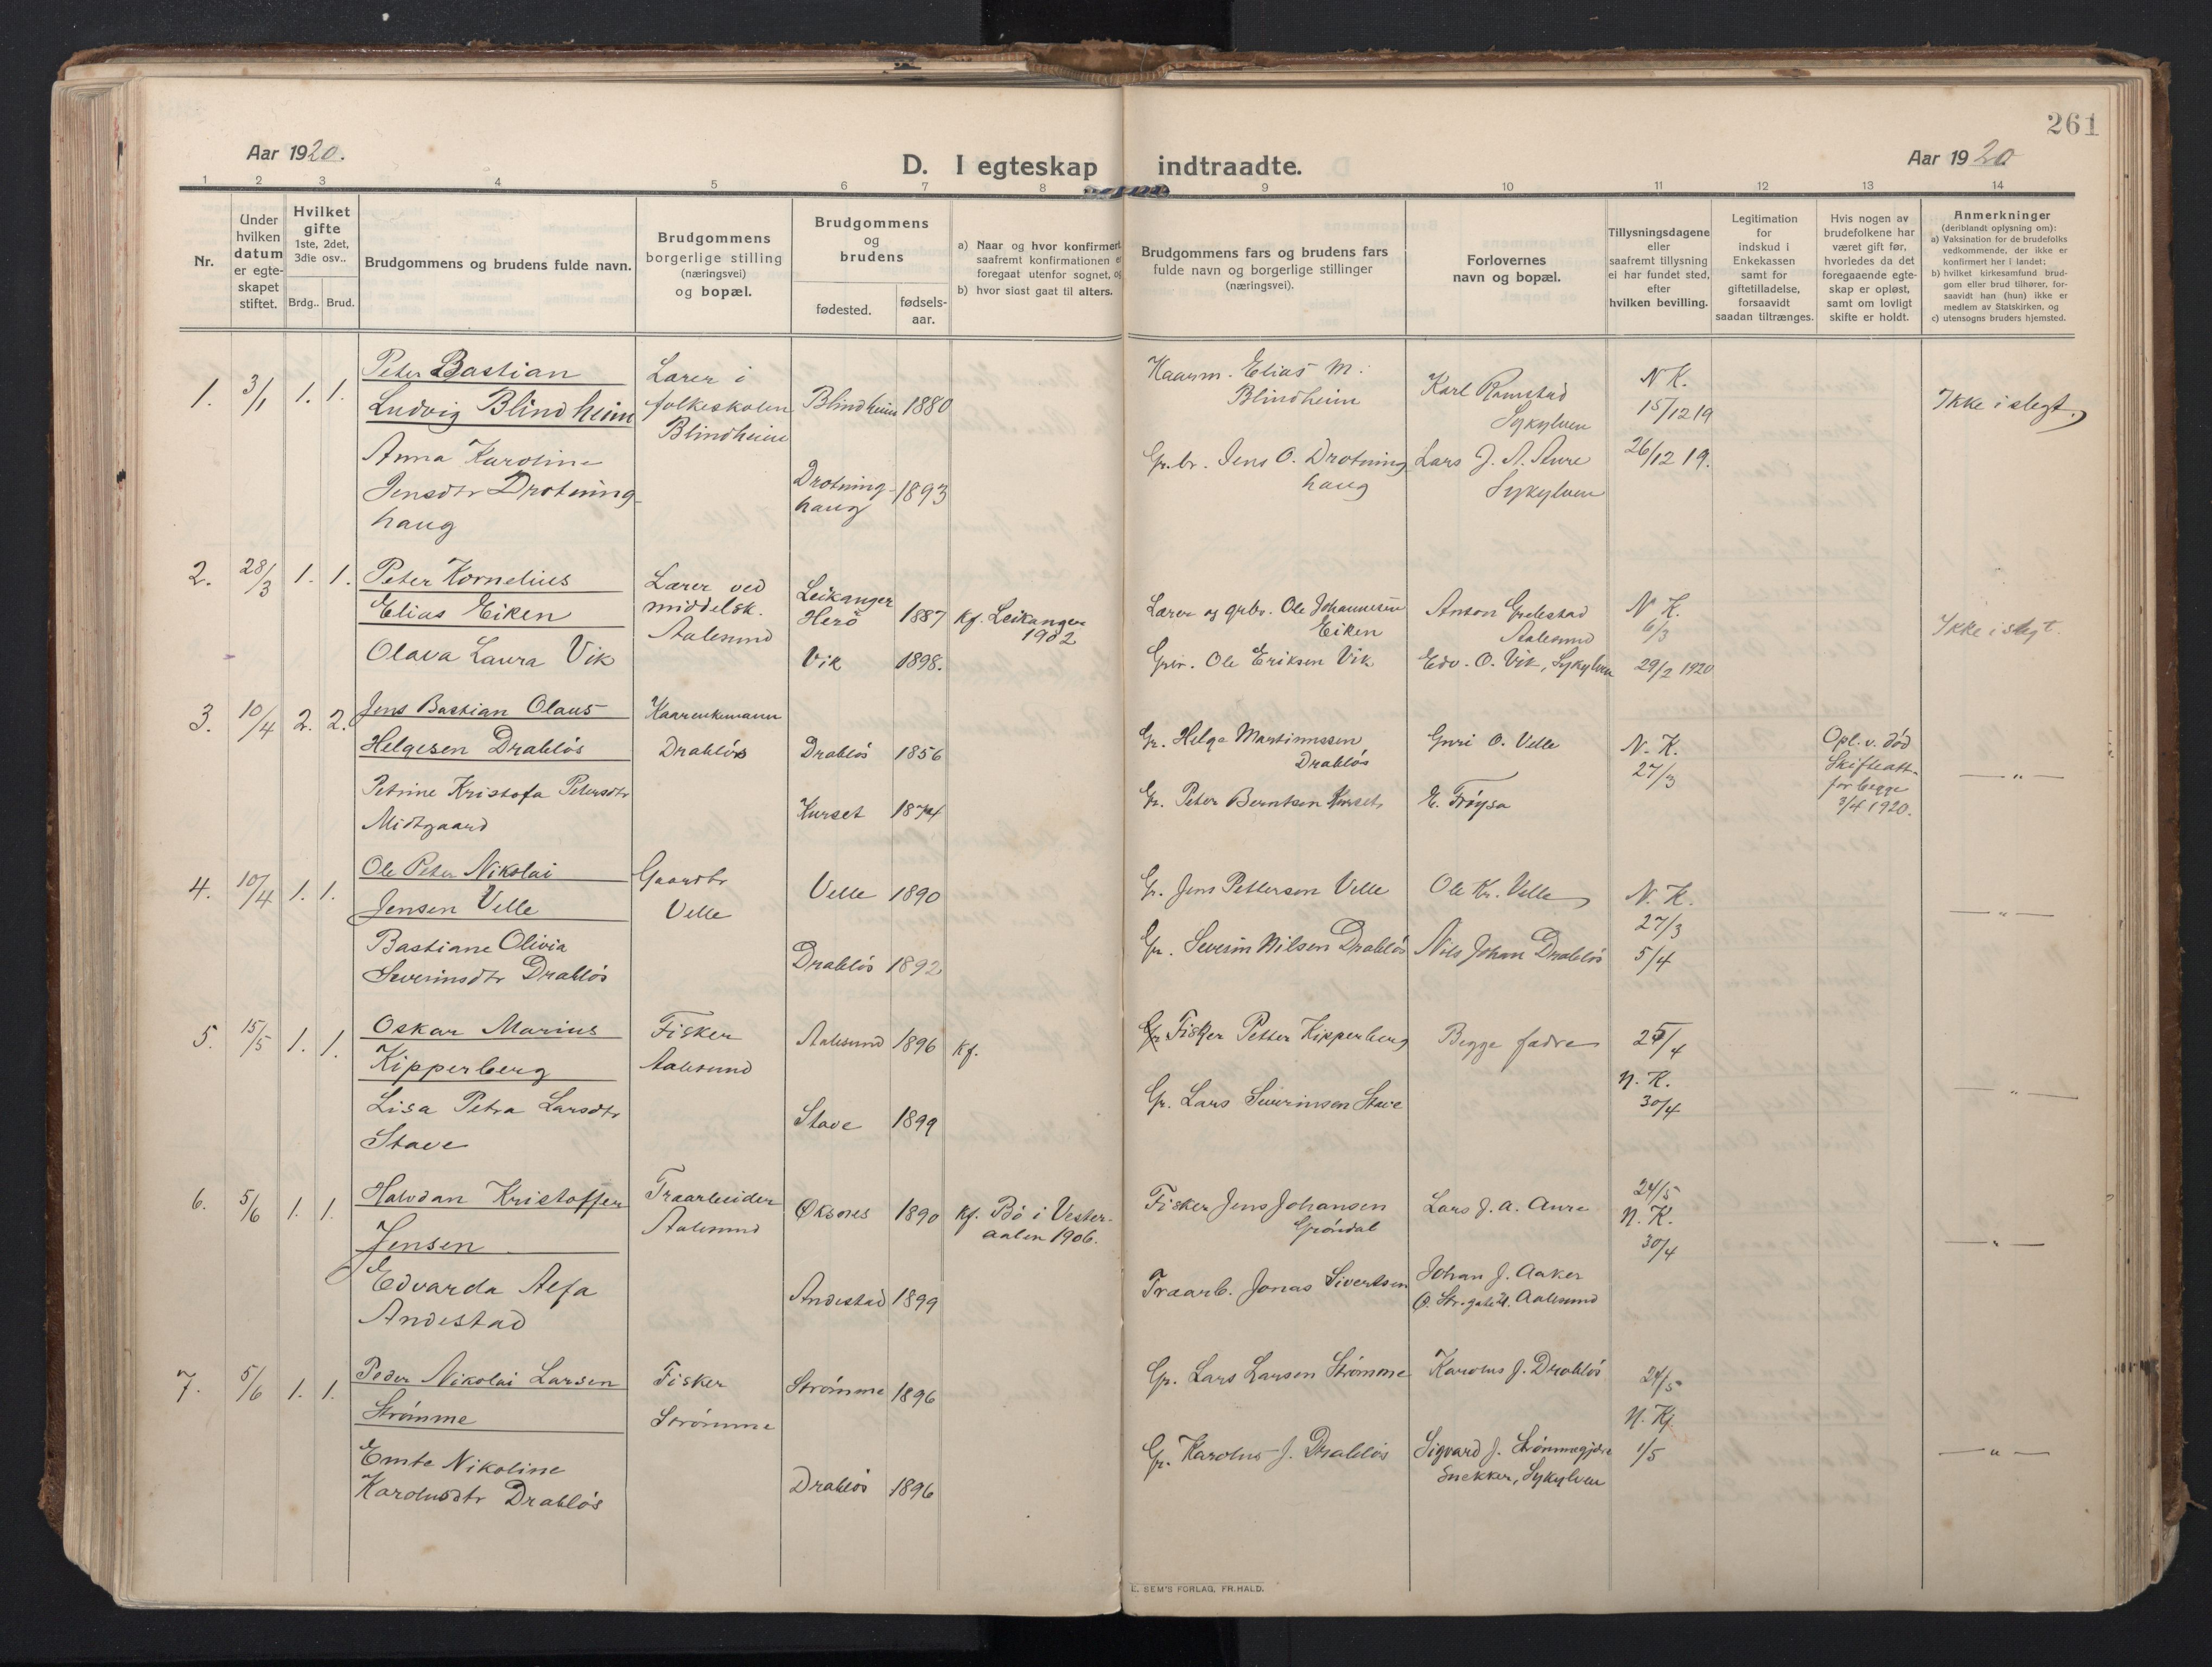 261
Aar 1920.
D. I egteskap indtraadte.
Aar 1920
1 2 3 4 5 6 7 8 9 10 11 12 13 14
Nr.
Under
hvilken
datum
er egte-
skapet
stiftet.
Hvilket
gifte
1ste, 2det,
3die osv..
Brdg.. Brud.
Brudgommens og brudens fulde navn.
Brudgommens
borgerlige stilling
(næringsvei)
og bopæl.
Brudgommens
og
brudens
fødested.
fødsels-
aar.
a) Naar og hvor konfirmert
saafremt konfirmationen er
foregaat utenfor sognet, og
b) hvor sidst gaat til alters.
Brudgommens fars og brudens fars
fulde navn og borgerlige stillinger
(næringsvei).
Forlovernes
navn og bopæl.
Tillysningsdagene
eller
saafremt tillysning
ei har fundet sted,
efter
hvilken bevilling.
Legitimation
for
indskud i
Enkekassen
samt for
giftetilladelse,
forsaavidt
saadan tiltrænges.
Hvis nogen av
brudefolkene har
været gift før,
hvorledes da det
foregaaende egte-
skap er opløst,
samt om lovligt
skifte er holdt.
Anmerkninger
(deriblandt oplysning om):
a) Vaksination for de brudefolks
vedkommende, der ikke er
konfirmert her i landet;
b) hvilket kirkesamfund brud-
gom eller brud tilhører, for-
saavidt han (hun) ikke er
medlem av Statskirken, og
c) utensogns bruders hjemsted.
1. 3/1 1. 1.
Peter Bastian
Ludvig Blindheim
Anna Karoline
Jensdtr Drotning-
haug
Lærer i
folkeskolen
Blindheim
Blindheim 1880
Drotning-
haug 1893
Kaarm. Elias M.
Blindheim
Gr.br. Jens O. Drotning
haug
Karl Ramstad
Sykylven
Lars J. A. Aure
Sykylven
N K.
15/12 19
26/12 19.
Ikke i slegt.
2. 28/3 1. 1.
Peter Kornelius
Elias Eiken
Olava Laura Vik
Lærer ved
middelsk.
Aalesund
Leikanger
Herö 1887
Vik 1898.
Kf. Leikanger
1902
Lærer og grbr. Ole Johannesen
Eiken
Grbr. Ole Eriksen Vik
Anton Grebstad
Aalesund
Edv. O. Vik, Sykylven
N K.
6/3
29/2 1920
Ikke i slegt.
3. 10/4 2. 2.
Jens Bastian Olaus
Helgesen Drabløs
Petrine Kristofa Petersdtr
Midtgaard
Kaarenkemann
Drabløs
Drabløs 1856
Kurset 1874
Gr. Helge Martinussen
Drabløs
Gr. Peter Berntsen Kurset
Guri O. Velle
E. Frøysa
N. K.
27/3
Opl. v. död
Skifteatt.
for begge
3/4 1920.
— " —
4. 10/4 1. 1.
Ole Peter Nikolai
Jensen Velle
Bastiane Olivia
Severinsdtr Drabløs
Gaardbr
Velle
Velle 1890
Drabløs 1892
Gr. Jens Pettersen Velle
Gr. Severin Nilsen Drabløs
Ole Kr. Velle
Nils Johan Drabløs
N. K.
27/3
5/4
— " —
5. 15/5 1. 1.
Oskar Marius
Kipperberg
Lisa Petra Larsdtr
Stave
Fisker
Aalesund
Aalesund 1896
Stave 1899
Kf.
Gr Fisker Petter Kipperberg
Gr. Lars Severinsen Stave
Begge fædre
25/4
N. K.
30/4
— " —
6. 5/6 1. 1.
Halvdan Kristoffer
Jensen
Edvarda Alfa
Andestad
Traarbeider
Aalesund
Øksnes 1890
Andestad 1899
Kf. Bø i Vester-
aalen 1906.
Fisker Jens Johansen
Grøndal
Traarb. Jonas Sivertsen
Lars J. A. Aure
Johan J. Aaker
Aalesund
24/5
N. K.
30/4
— " —
7. 5/6 1. 1.
Peder Nikolai Larsen
Strømme
Emte Nikoline
Karolusdtr Drabløs
Fisker
Strømme
Strømme 1896
Drabløs 1896
Gr. Lars Larsen Strømme
Gr. Karolus J. Drabløs
Karolus J. Drabløs
Sigvard J. Strømmegjære
Snekker, Sykylven
24/5
N. K.
1/5
— " —
E. SEM'S FORLAG, FR.HALD.